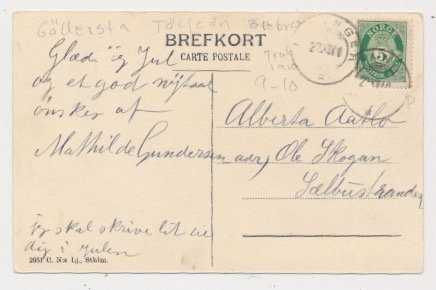 Gällersta Täljeån Örebro
BREFKORT
CARTE POSTALE
9-10
NORGE
5
Glæd ig Jul
og et god nÿtaar
ønsker af
Mathilde Gundersen
Alberta Aatlo
adr, Ole Skogan
Sælbustranden
jeg skal skrive lit
dig i Julen
2951 C. N:s Lj., Sthlm.